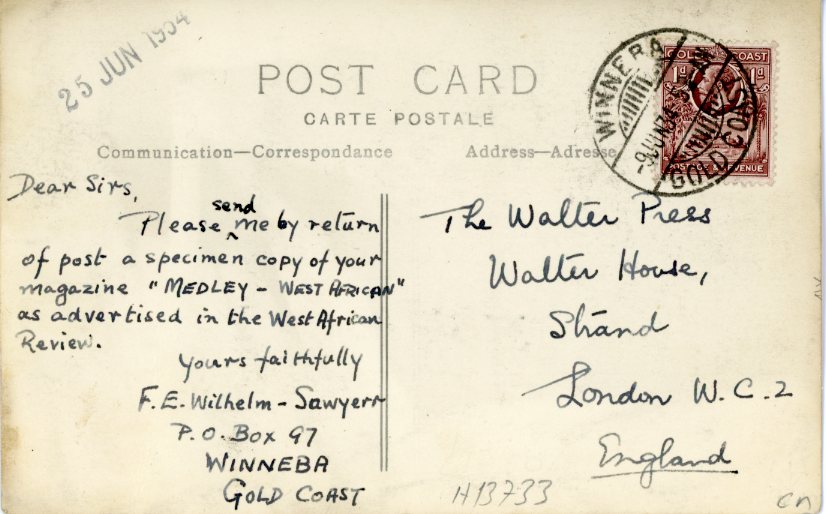 25 JUN 1934
POST CARD
CARTE POSTALE
Communication—Correspondance
Address—Adresse
WINNEBA
GOLD COAST
GOLD COAST
1d 1d
POSTAGE REVENUE
Dear Sirs,
Please send me by return
of post a specimen copy of your
magazine "MEDLEY - WEST AFRICAN"
as advertised in the West African
Review.
Yours faithfully
F.E. Wilhelm-Sawyerr
P.O. Box 97
WINNEBA
GOLD COAST
The Walter Press
Walter House,
Strand
London W.C.2
England
H13733